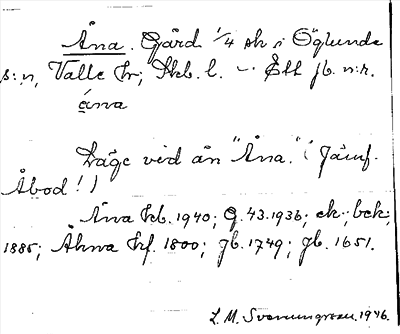 Åna. Gård 1/4 sk i Öglunda
s:n, Valle hr; Skb. l. – Ett jb. n:r.
åna
Läge vid ån "Åna." (Jämf.
Åbod!)
Åna kb. 1940; G. 43. 1936; ek; bek;
1885; Åhna hf. 1800; jb. 1749; jb. 1651.
L. M. Svenungsson. 1946.